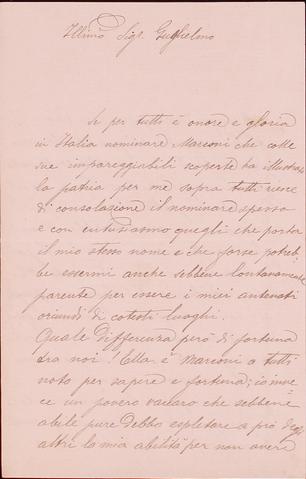 Illmo Sigr. Guglielmo
Se per tutti è onore e gloria
in Italia nominare Marconi che colle
sue impareggiabili scoperte ha illustrato
la patria per me sopra tutti riesce
di consolazione il nominare spesso
e con entusiasmo quegli che porta
il mio stesso nome e che forse potreb
be essermi anche sebbene lontanamente
parente per essere i miei antenati
oriundi di cotesti luoghi.
Quale differenza però di fortuna
tra noi! Ella è Marconi a tutti
noto per sapere e fortuna; io inve
ce un povero vaccaro che sebbene
abile pure debbo espletare a prò degli
altri la mia abilità per non avere